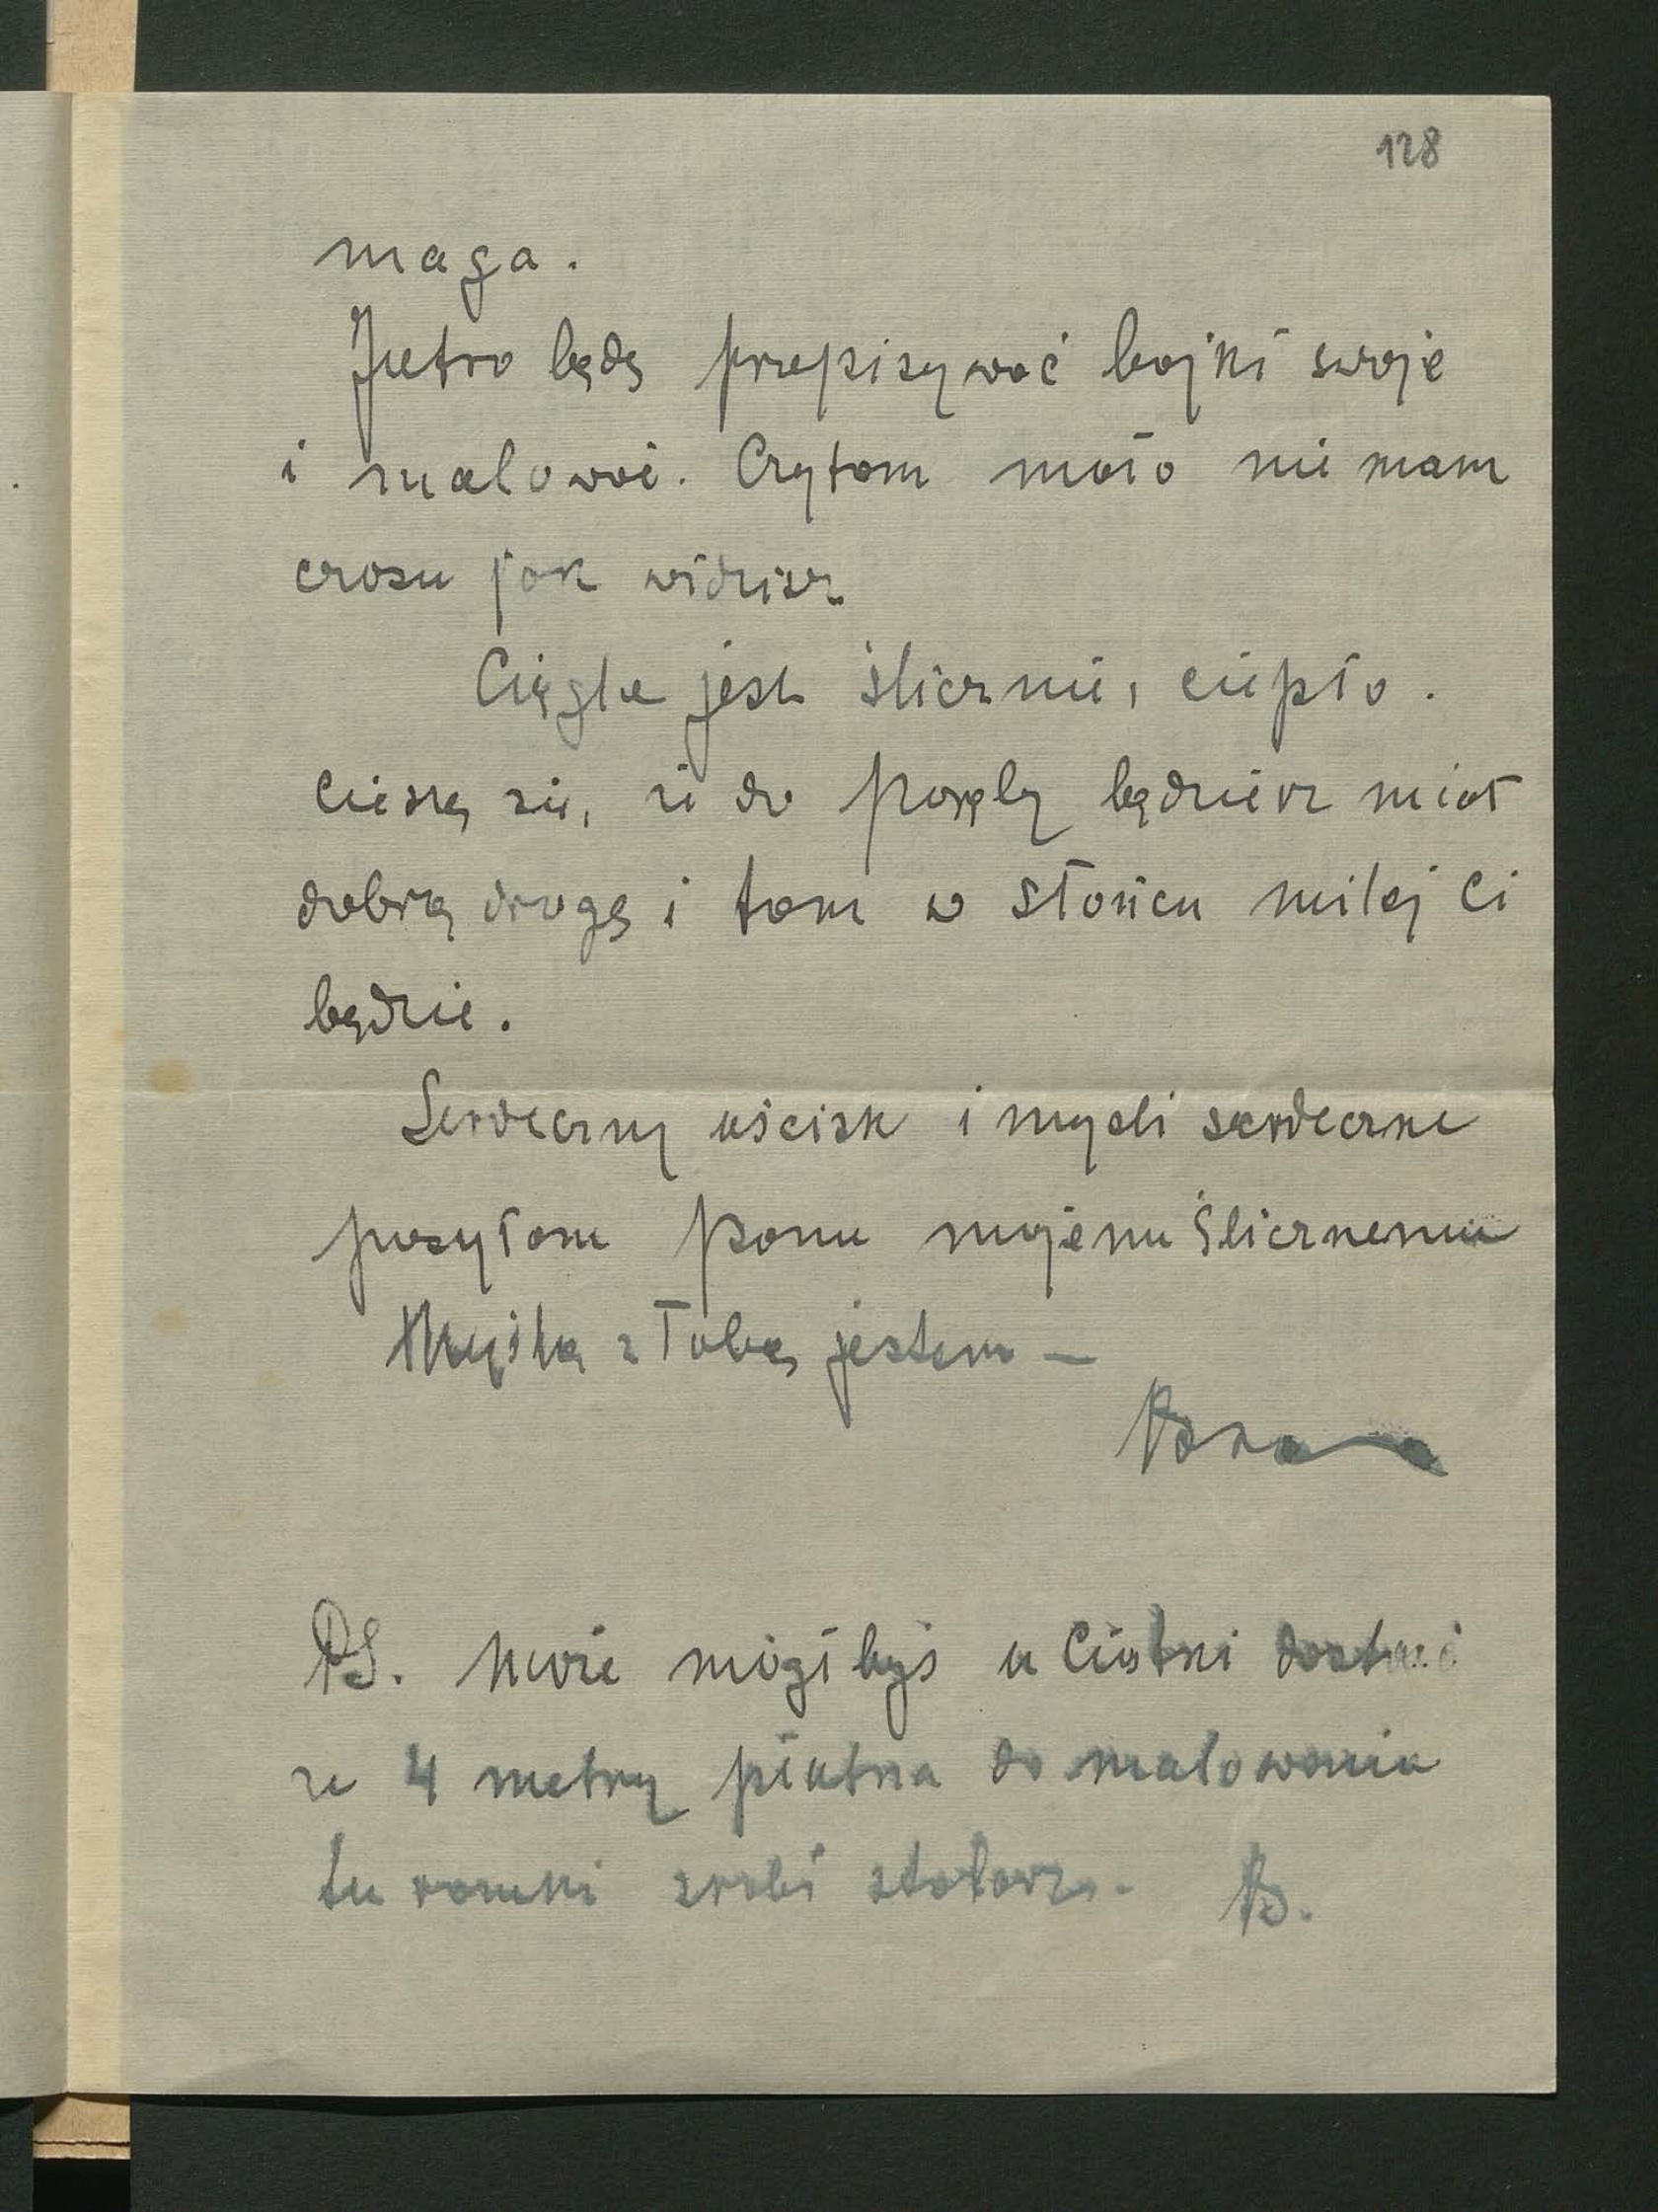 128
maga.
Jutro będę przepisywać bajki swoje
i malować. Czytam mało nie mam
czasu jak widzisz.
Ciągle jest ślicznie, ciepło.
Cieszę się, że do Poręby będziesz miał
dobrą drogę i tam w słońcu milej Ci
będzie.
Serdeczny uścisk i myśli serdeczne
posyłam Panu mojemu ślicznemu
Myślą z Tobą jestem —
PS. Może mógłbyś u Ciotki dostać
ze 4 metry płutna do malowania
tu ramki zrobi stolarz. B.